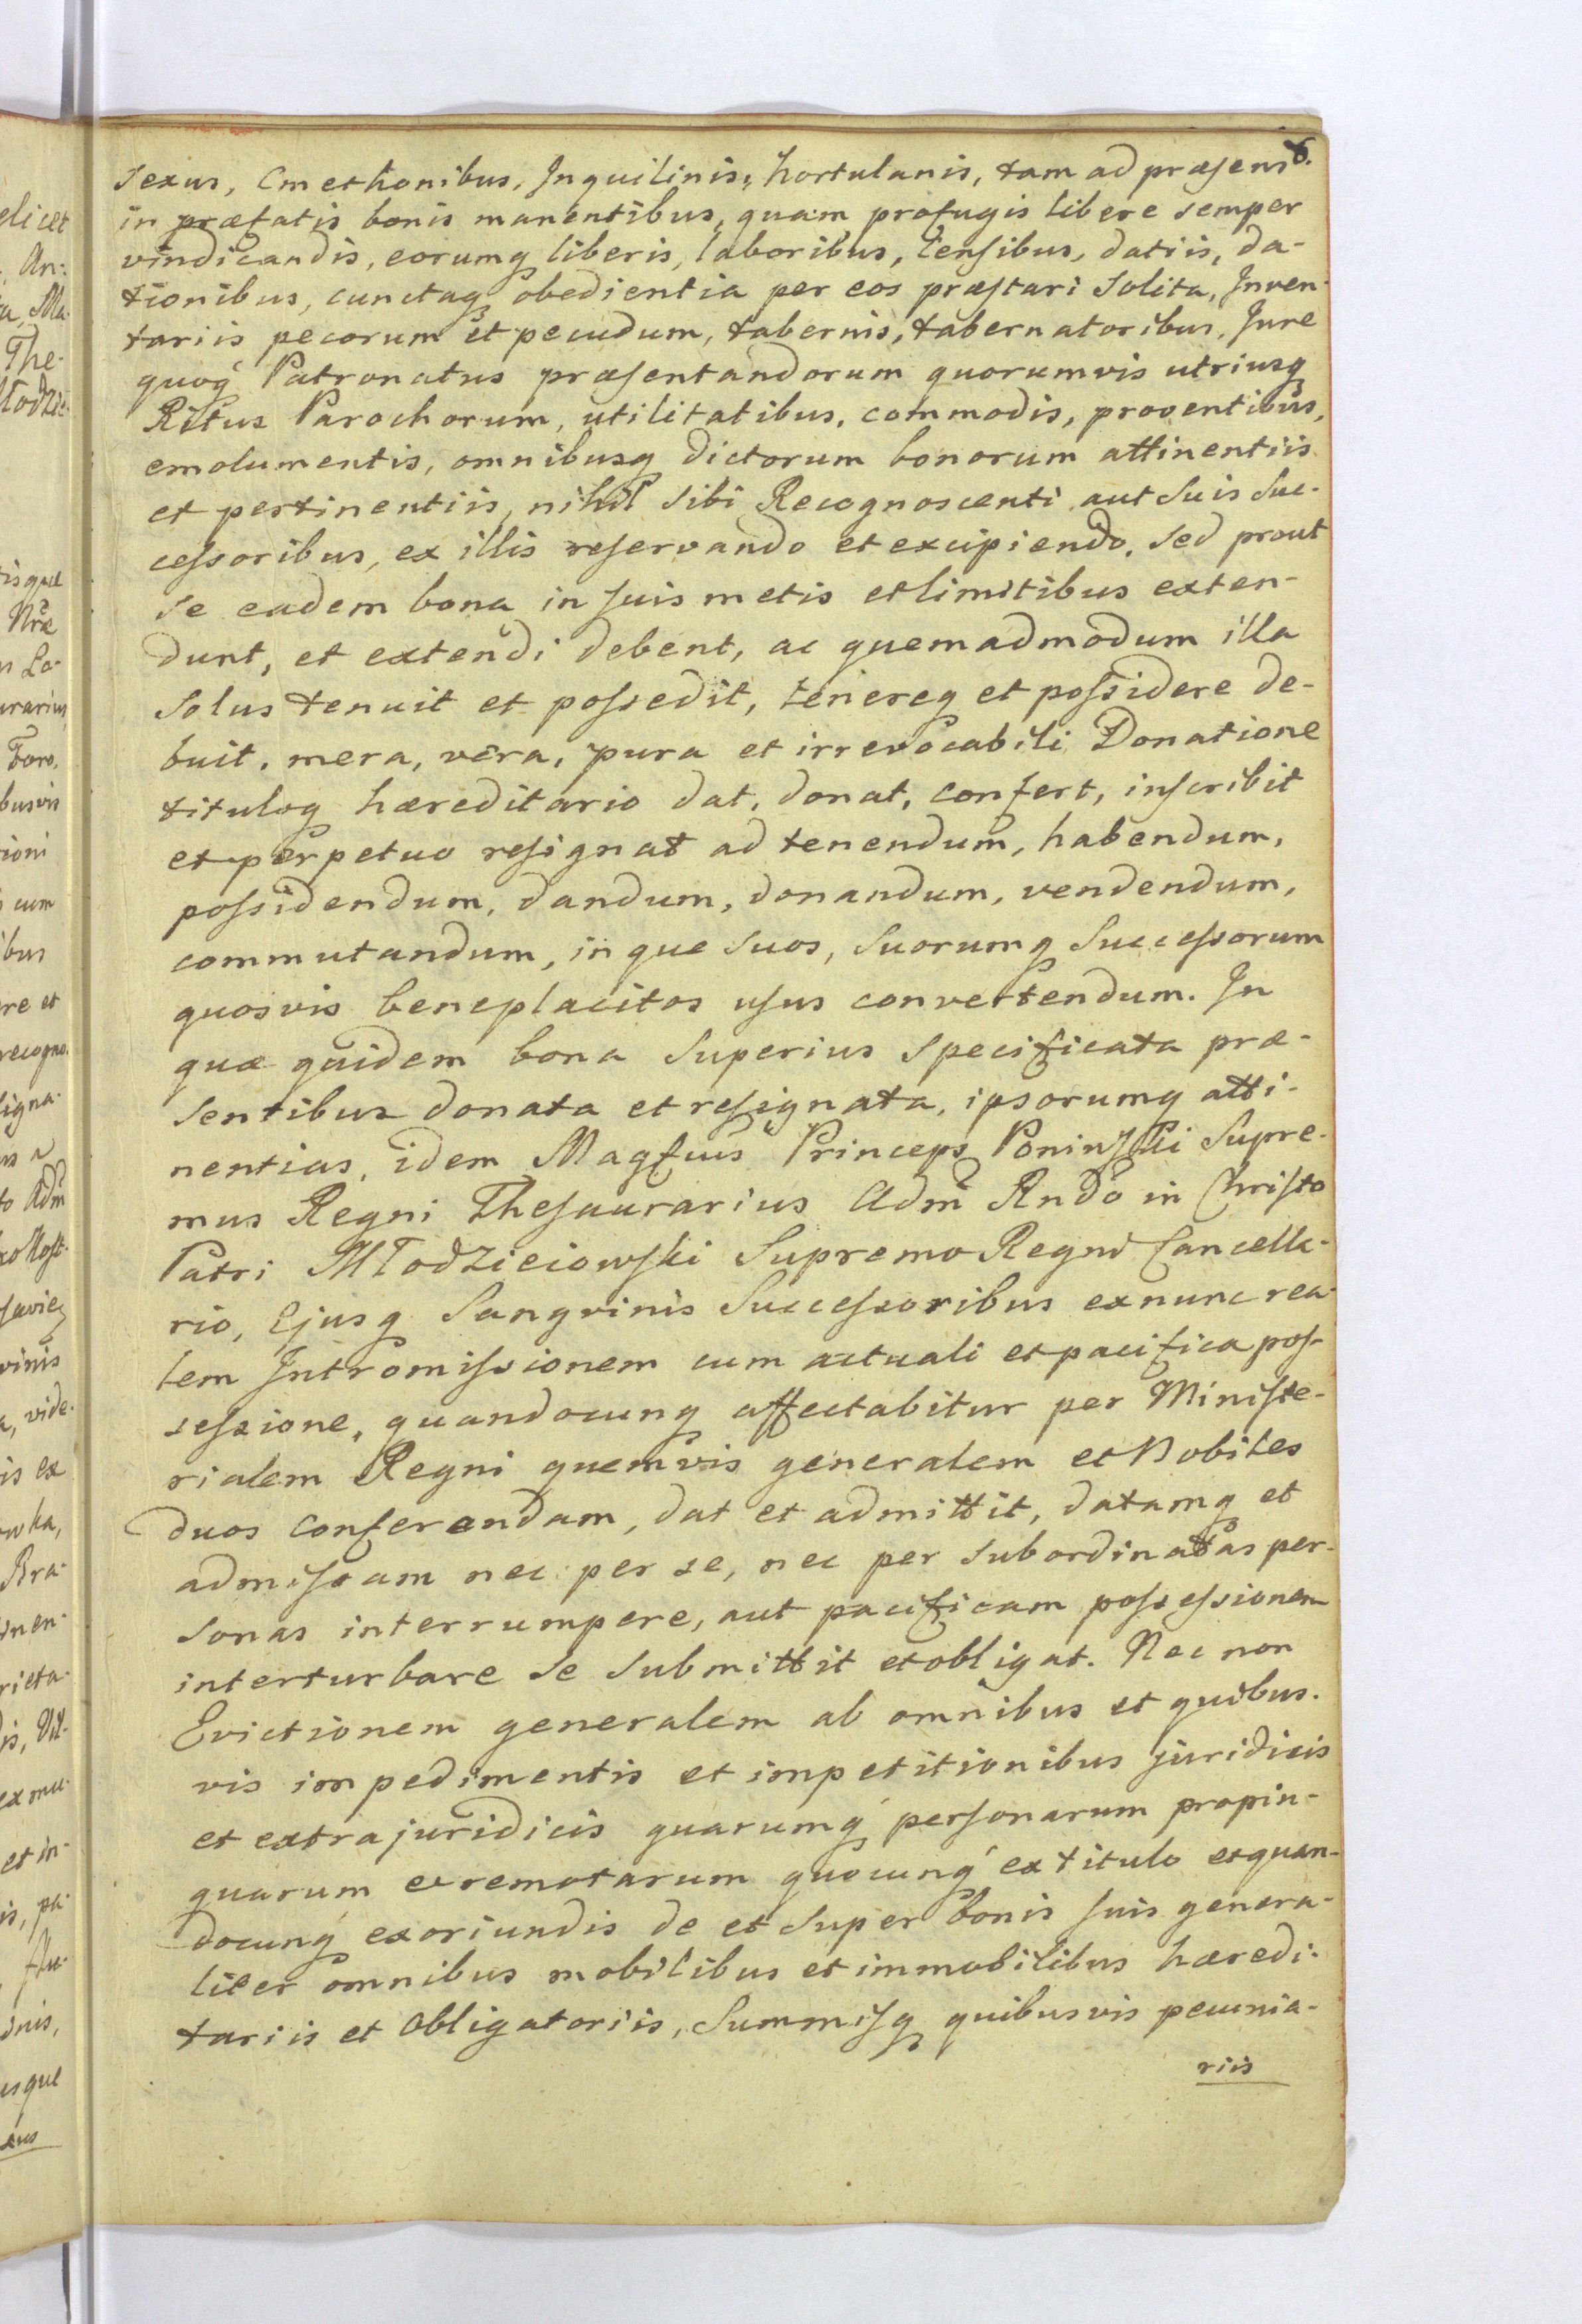 6.
sexus, Cmethonibus, Inquilinis, hortulanis, tam ad præsens
in præfatis bonis manentibus, quam profugis libere semper
vindicandis, eorumq liberis, laboribus, Censibus, datiis, da-
tionibus, cunctaq obedientia per eos præstari Solita, Inven-
tariis pecorum et pecudum, tabernis, tabernatoribus, Jure
quoq Patronatus præsentandorum quorumvis utriusq
Ritus Parochorum, utilitatibus, commodis, proventibus,
emolumentis, omnibusq dictorum bonorum attinentiis
et pertinentiis, nihil sibi Recognoscenti aut Suis Suc-
cessoribus, ex illis reservando et excipiendo, sed prout
se eadem bona in suis metis et limitibus exten-
dunt, et extendi debent, ac quemadmodum illa
Solus tenuit et possedit, tenereq et possidere de-
buit, mera, vera, pura et irrevocabili Donatione
tituloq hæreditario dat, donat, confert, inscribit
et perpetuo resignat ad tenendum, habendum,
possidendum, dandum, donandum, vendendum,
commutandum, in que Suos, Suorumq Successorum
quosvis beneplacitos usus convertendum. In
quæ quidem bona Superius Specificata præ-
sentibus donata et resignata, ipsorumq atti-
nentias, idem Magfcus Princeps Poniński Supre-
mus Regni Thesaurarius Adm Rndo in Christo
Patri Młodzieiowski Supremo Regni Cancella-
rio, Ejusq Sangvinis Successoribus exnunc rea-
lem Intromissionem cum actuali et pacifica pos-
sessione, quandocunq affectabitur per Ministe-
rialem Regni quemvis generalem et Nobiles
duos conferendam, dat et admittit, datamq et
admissam nec per se, nec per Subordinatas per-
sonas interrumpere, aut pacificam possessionem
interturbare se Submittit et obligat. Nec non
Evictionem generalem ab omnibus et quibus-
vis impedimentis et impetitionibus juridicis
et extrajuridicis quarumq personarum propin-
quarum et remotarum quocunq ex titulo et quan-
docunq exoriundis de et Super bonis suis genera-
liter omnibus mobilibus et immobilibus hæredi-
tariis et obligatoriis, Summisq quibusvis pecunia-
riis